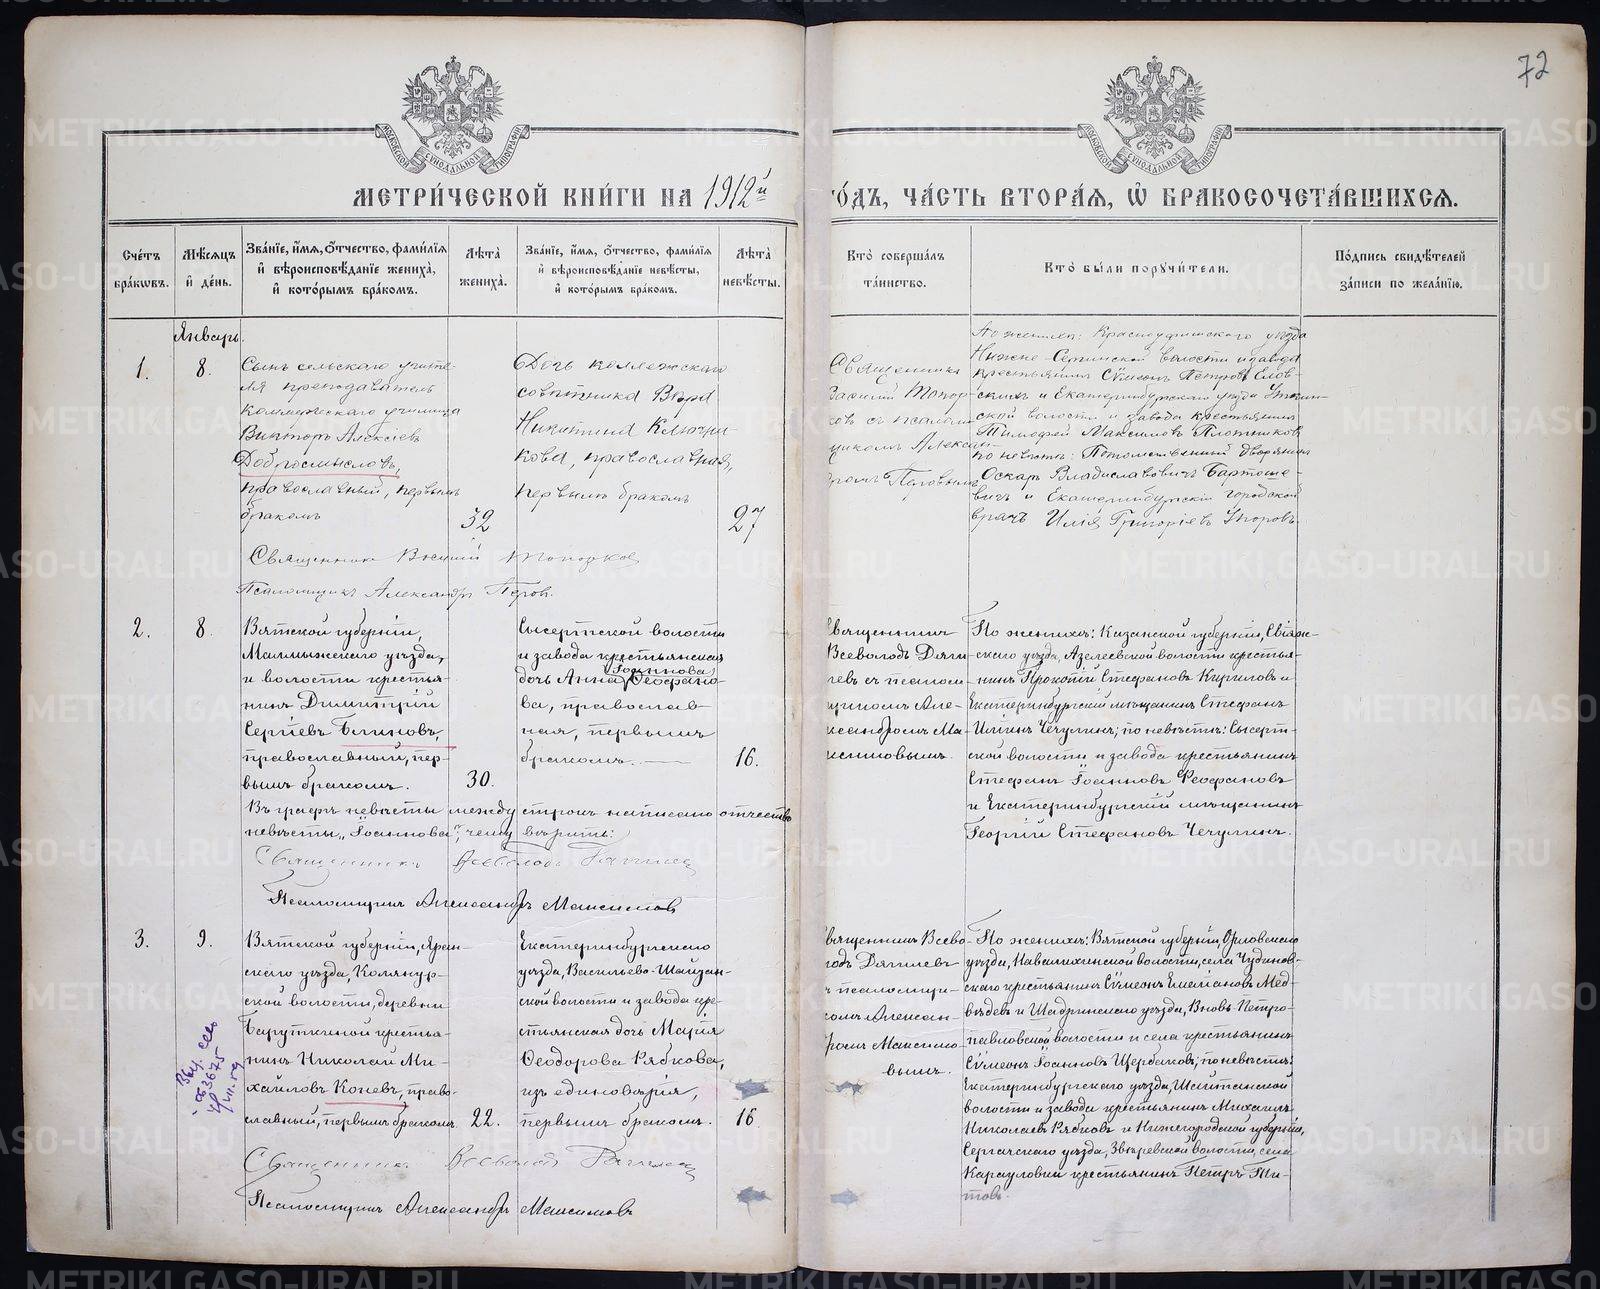 72
МОСКОВСКОЙ СѴНОДАЛЬНОЙ ТИПОГРАФІИ
МОСКОВСКОЙ СѴНОДАЛЬНОЙ ТИПОГРАФІИ
МЕТРИ́ЧЕСКОЙ КНИ́ГИ НА 1912й
ГО́ДЪ, ЧА́СТЬ ВТОРА́Ѧ, Ѽ БРАКОСОЧЕТА́ВШИХСѦ.
Сче́тъ бра́кѡвъ.
Мѣ́сѧцъ и҆ де́нь.
Зва́нїе, и҆́мѧ, ѻ҆́тчество, фами́лїѧ и҆ вѣроисповѣ́данїе жениха̀, и҆ кото́рымъ бра́комъ.
Лѣта̀ жениха̀.
Зва́нїе, и҆́мѧ, ѻ҆́тчество, фами́лїѧ и҆ вѣроисповѣ́данїе невѣ́сты, и҆ кото́рымъ бра́комъ.
Лѣта̀ невѣ́сты.
Кто̀ соверша́лъ та́инство.
Кто̀ бы́ли поручи́тели.
По́дпись свидѣ́телей за́писи по жела́нїю.
Январь.
1.
8.
Сынъ сельскаго учите-
ля преподаватель
Коммерческаго училища
Викторъ Алексіевъ
Добросмысловъ,
православный, первымъ
бракомъ
32
Дочь коллежскаго
совѣтника Вѣра
Никитина Ключни-
кова, православная,
первымъ бракомъ
27
Священникъ
Василій Топор-
ковъ съ псалом-
щикомъ Алексан-
дромъ Перовымъ
По женихѣ: Красноуфимскаго уѣзда
Нижне-Сергинской волости и завода
крестьянинъ Сѵмеонъ Петровъ Елов-
скихъ и Екатеринбургскаго уѣзда Уткин-
ской волости и завода крестьянинъ
Тимофей Максимовъ Плотниковъ
по невѣстѣ: Потомственный дворянинъ
Оскаръ Владиславовичъ Бартоше-
вичъ и Екатеринбургскій городской
врачъ Илія Григоріевъ Упоровъ.
Священникъ Василій Топорковъ
Псаломщикъ Александръ Перовъ.
2.
8.
Вятской губерніи,
Малмыжскаго уѣзда,
и волости крестья-
нинъ Димитрій
Сергіевъ Блиновъ,
православный, пер-
вымъ бракомъ.
30.
Сысертской волости
и завода крестьянская
Іоаннова
дочь Анна Ѳеофано-
ва, православ-
ная, первымъ
бракомъ.
16.
Священникъ
Всеволодъ Дяги-
левъ съ псалом-
щикомъ Але-
ксандромъ Ма-
ксимовымъ.
По женихѣ: Казанской губерніи, Свіяж-
скаго уѣзда, Азелеевской волости крестья-
нинъ Прокопій Стефановъ Кириловъ и
Екатеринбургскій мѣщанинъ Стефанъ
Илiинъ Чечулинъ; по невѣстѣ: Сысерт-
ской волости и завода крестьянинъ
Стефанъ Іоанновъ Ѳеофановъ
и Екатеринбургскій мѣщанинъ
Георгій Стефановъ Чечулинъ.
Въ графѣ невѣсты между строкъ написано отчество
невѣсты „Іоаннова", чему вѣрить:
Священникъ Всеволодъ Дягилевъ
Псаломщикъ Александръ Максимовъ
3.
9.
Вятской губерніи, Яран-
скаго уѣзда, Колянур-
ской волости, деревни
Барушкиной крестья-
нинъ Николай Ми-
хайловъ Коневъ, право-
славный, первымъ бракомъ.
22.
Екатеринбургскаго
уѣзда, Васильево-Шайтан-
ской волости и завода кре-
стьянская дочь Марія
Ѳеодорова Рябкова,
изъ единовѣрія,
первымъ бракомъ.
16
Священникъ Всево-
лодъ Дягилевъ
съ псаломщи-
комъ Алексан-
дромъ Максимо-
вымъ.
По женихѣ: Вятской губерніи, Орловскаго
уѣзда, Навалихинской волости, села Чудинов-
скаго крестьянинъ Сѵмеонъ Емеліановъ Мед-
вѣдевъ и Шадринскаго уѣзда, Вновь-Петро-
павловской волости и села крестьянинъ
Сѵмеонъ Іоанновъ Щербаковъ; по невѣстѣ:
Екатеринбургскаго уѣзда, Шайтанской
волости и завода крестьянинъ Михаилъ
Николаевъ Рябковъ и Нижегородской губерніи,
Сергачскаго уѣзда, Звѣревской волости, села
Карауловки крестьянинъ Петръ Ти-
товъ.
Священникъ Всеволодъ Дягилевъ
Псаломщикъ Александръ Максимовъ
METRIKI.GASO-URAL.RU